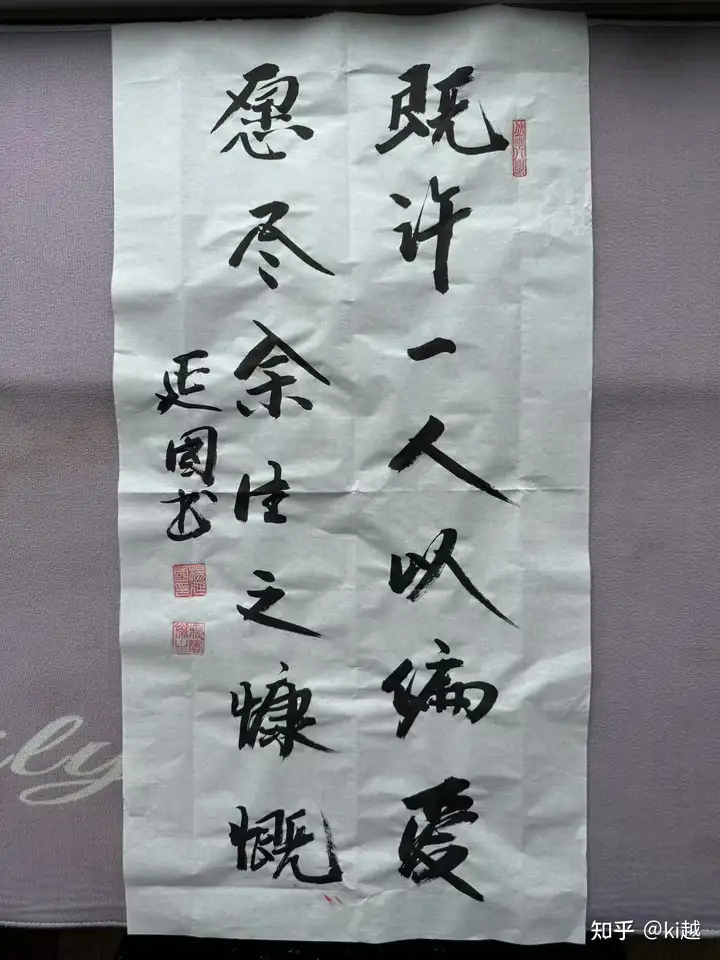 既许一人以编爱
愿尽余生之慷慨
延國书
知乎 @ki越